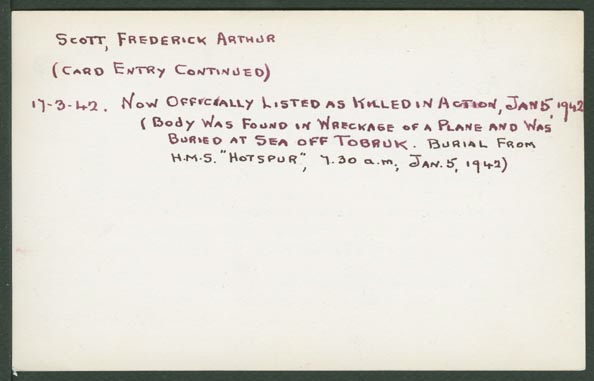 SCOTT, FREDERICK ARTHUR
(CARD ENTRY CONTINUED)
17-3-42. NOW OFFICIALLY LISTED AS KILLED IN ACTION, JAN 5, 1942
(BODY WAS FOUND IN WRECKAGE OF A PLANE AND WAS
BURIED AT SEA OFF TOBRUK. BURIAL FROM
H.M.S. "HOTSPUR", 7.30 a.m, JAN. 5, 1942)